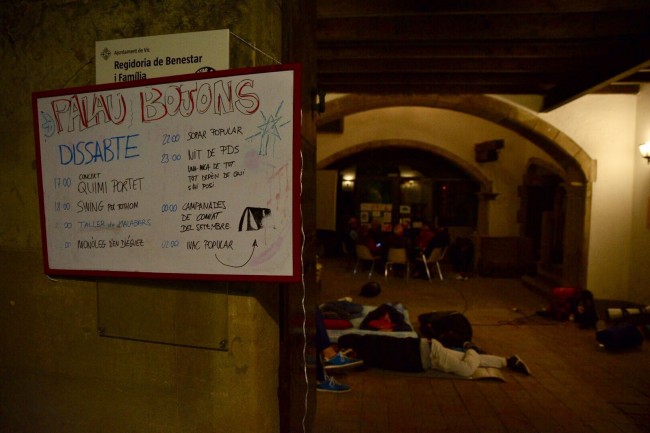 Ajuntament de Vic
Regidoria de Benestar
i Família
PALAU BOJONS
DISSABTE
17:00 CONCERT
QUIMI PORTET
18:00 SWING
TALLER DE MALABARS
MONÒLEG D'EN DIÉGUEZ
22:00 SOPAR POPULAR
23:00 NIT DE PDS
UNA MICA DE TOT
TOT DEPÈN DE QUI
S'HI POSI
00:00 CAMPANADES
DE COMBAT
DEL SETEMBRE
IVAC POPULAR